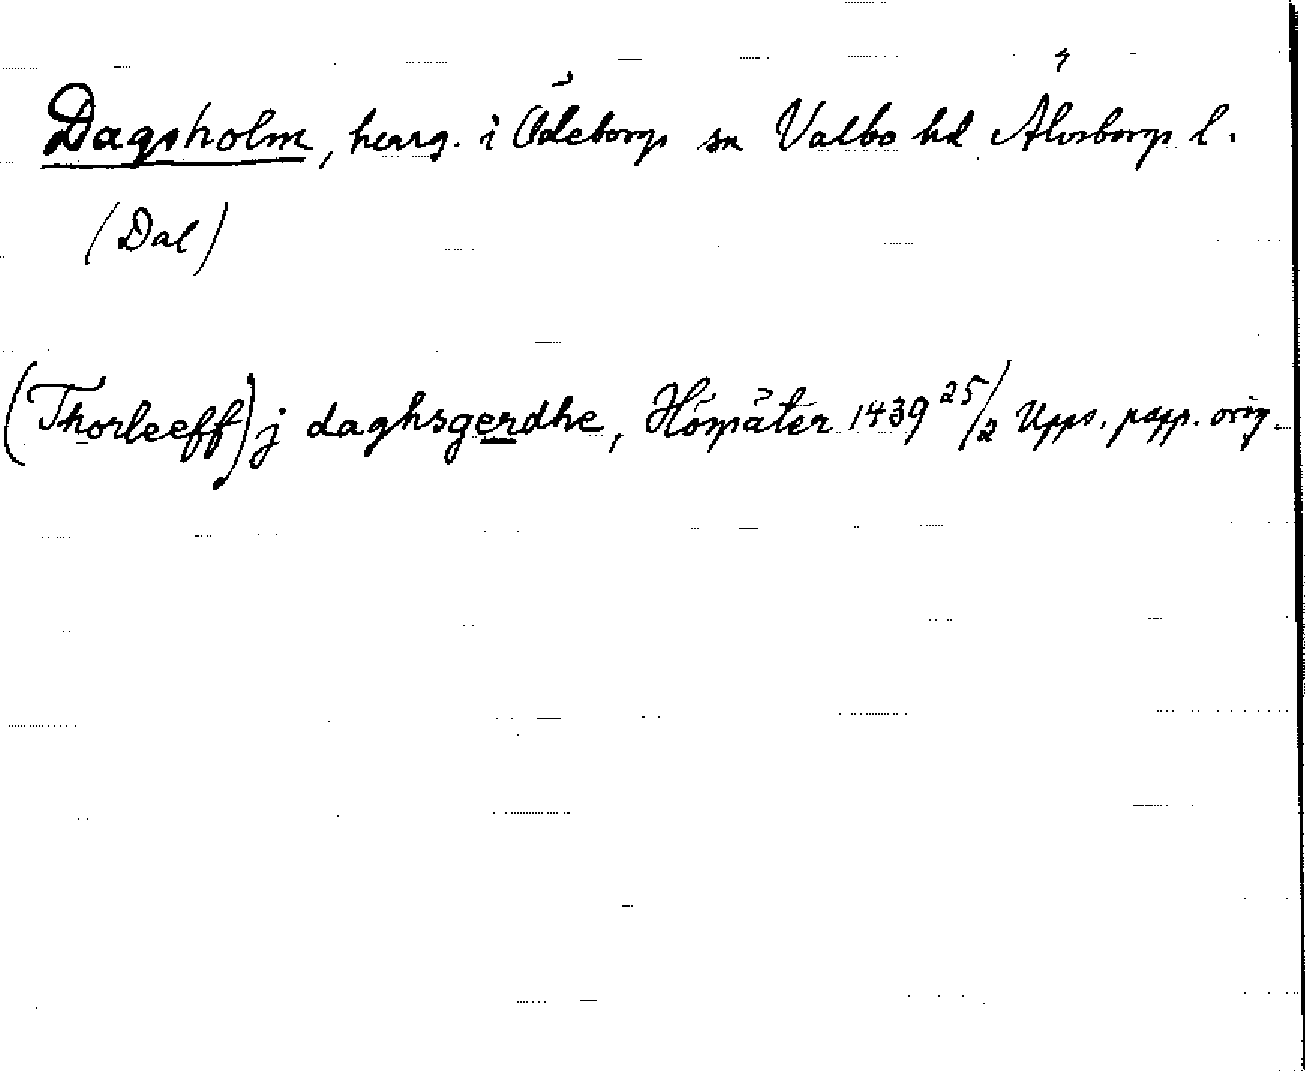 Dagsholm, herrg. i Ödeborgs sn Valbo hd Älvsborgs l.
(Dal)
(Thorleeff) j daghsgerdhe, Högsäter 1439 25/2 Upps. papp. orig.